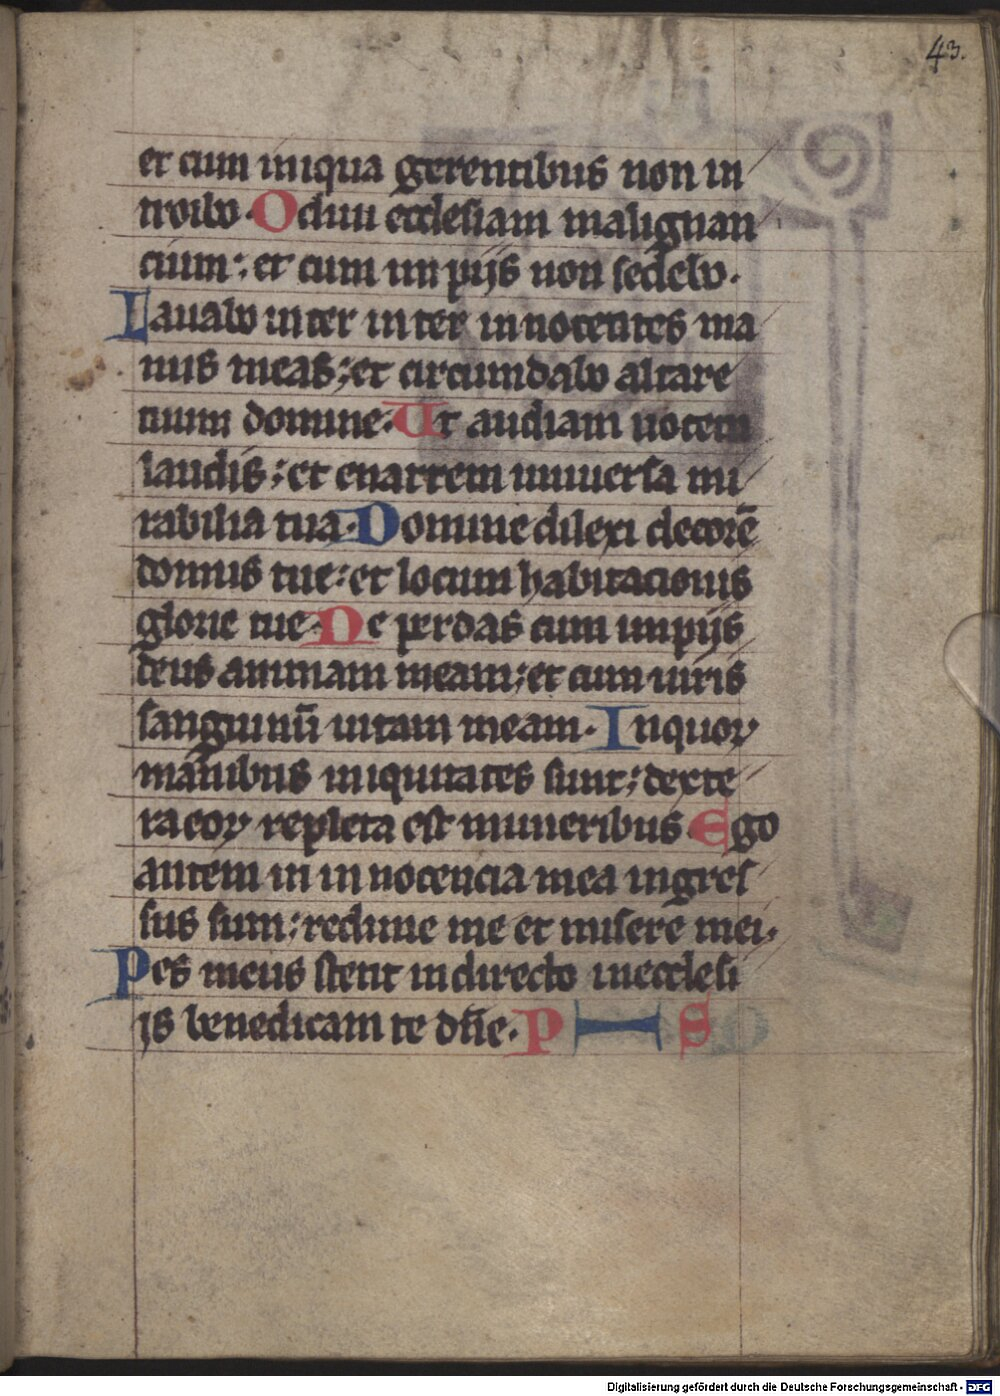 43.
et cum iniqua gerentibus non in
troibo. Odiui ecclesiam malignan
cium: et cum impijs non sedebo.
Lauabo inter inter innocentes ma
nus meas: et circumdabo altare
tuum domine. Ut audiam uocem
laudis: et enarrem uniuersa mi
rabilia tua. Domine dilexi decorē
domus tue: et locum habitacionis
glorie tue. Ne perdas cum impijs
deus animam meam: et cum uiris
sanguinū uitam meam. In quoꝝ
manibus iniquitates sunt: dexte
ra eoꝝ repleta est muneribus. Ego
autem in innocencia mea ingres
sus sum: redime me et misere mei.
Pes meus stetit in directo in ecclesi
js benedicam te dn̄e. P S
Digitalisierung gefördert durch die Deutsche Forschungsgemeinschaft - DFG